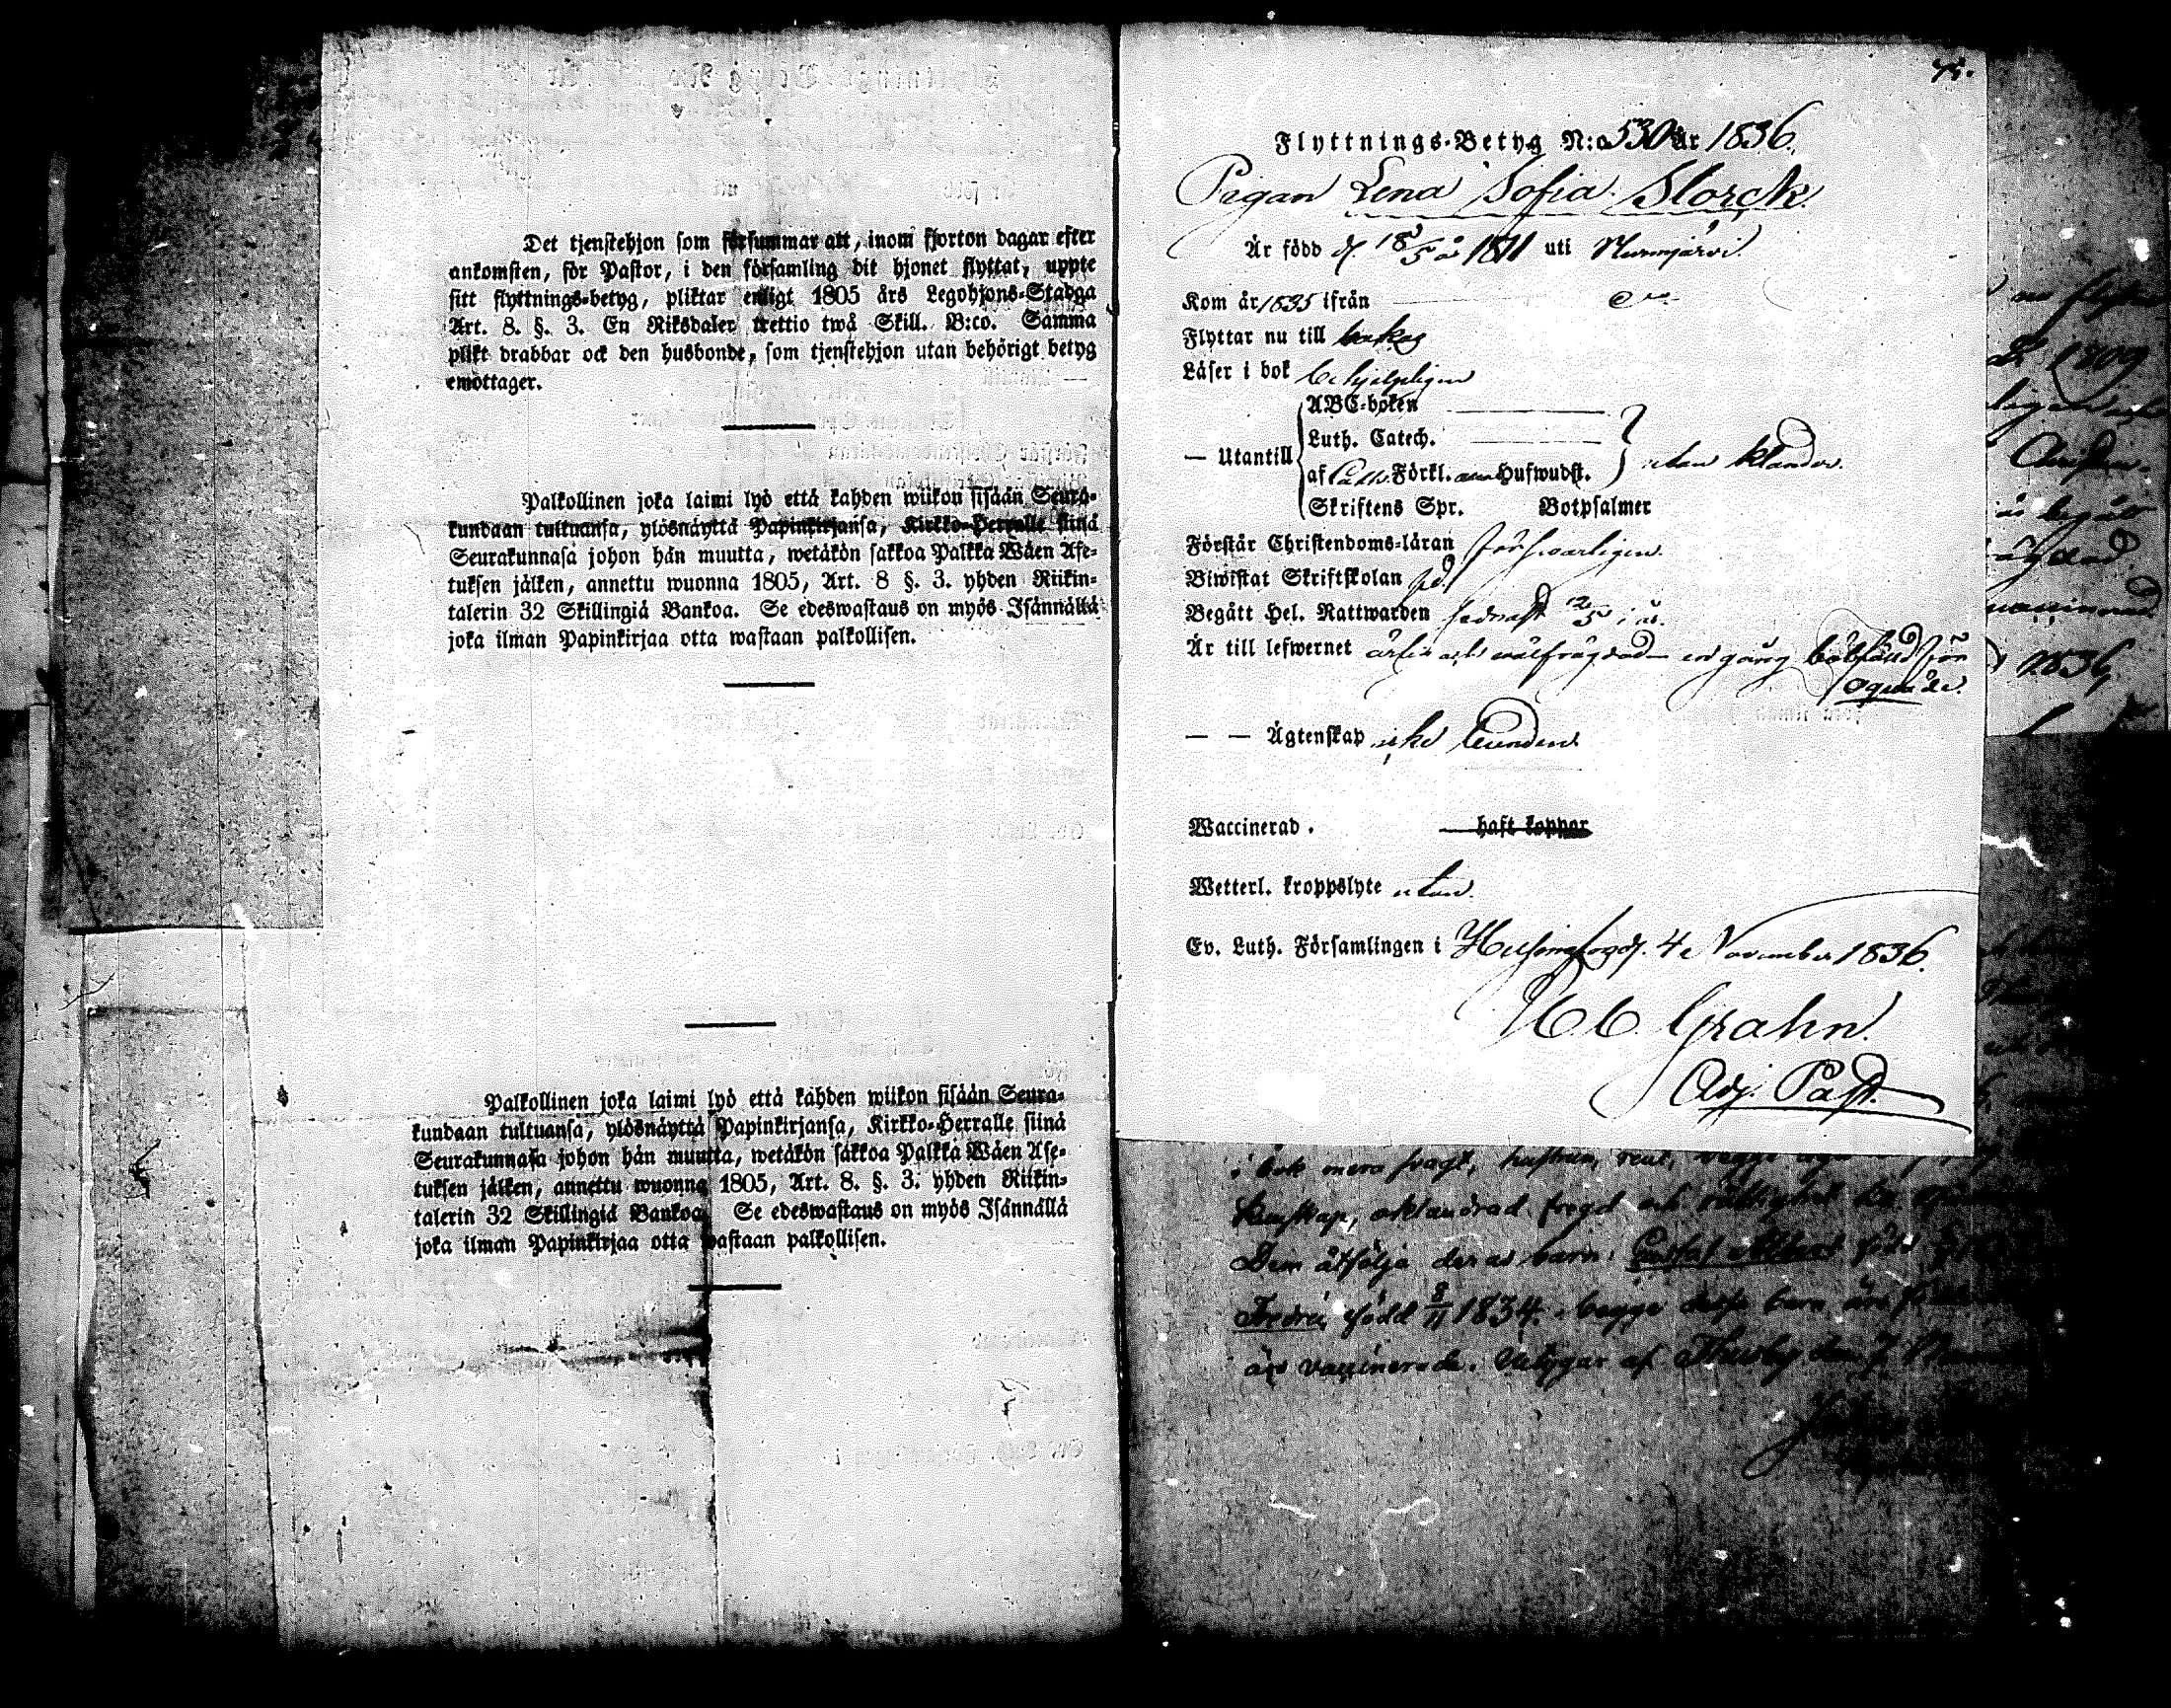 Det tjenstehjon som försummar att, inom fjorton dagar efter
ankomsten, för Pastor, i den församling dit hjonet flyttat, uppte
sitt flyttnings-betyg, pliktar enligt 1805 års Legohjons-Stadga
Art. 8. §. 3. En Riksdaler trettio twå Skill. B:co. Samma
plikt drabbar ock den husbonde, som tjenstehjon utan behörigt betyg
emottager.
Palkollinen joka laimi lyö että kahden wiikon sisään Seura-
kundaan tultuansa, ylösnäyttä Papinkirjansa, Kirkko-Herralle siinä
Seurakunnasa johon hän muutta, wetäkön sakkoa Palkka Wäen Ase-
tuksen jälken, annettu wuonna 1805, Art. 8 §. 3. yhden Riikin-
talerin 32 Skillingiä Bankoa. Se edeswastaus on myös Isännällä
joka ilman Papinkirjaa otta wastaan palkollisen.
Palkollinen joka laimi lyö että kahden wiikon sisään Seura-
kundaan tultuansa, ylösnäyttä Papinkirjansa, Kirkko-Herralle siinä
Seurakunnasa johon hän muutta, wetäkön sakkoa Palkka Wäen Ase-
tuksen jälken, annettu wuonna 1805, Art. 8. §. 3. yhden Riikin-
talerin 32 Skillingiä Bankoa. Se edeswastaus on myös Isännällä
joka ilman Papinkirjaa otta wastaan palkollisen.
Flyttnings-Betyg N:o 530 år 1836.
Pigan Lena Sofia Storck
Är född d. 18/5 år 1811 uti Nurmijärvi.
Kom år 1835 ifrån
Flyttar nu till
Läser i bok behjelpligen
ABC-boken
Luth. Catech.
— Utantill utan klander.
af Förkl. Hufwudst.
Skriftens Spr. Botpsalmer
Förstår Christendoms-läran försvarligen.
Biwistat Skriftskolan
Begått Hel. Nattwarden sednast 2/5 i år.
Är till lefwernet ärlig och wälfrägdad en gång bötfälld för
oqwäde.
— — Ägtenskap icke bunden.
Waccinerad. haft koppor
Wetterl. kroppslyte utan.
Ev. Luth. Församlingen i Helsingfors d. 4 November 1836.
Grahn.
Adj. Past.
1809
1836
i bok
och
Dem åtfölja deras barn: Gustaf
född 8/11 1834. begge barn
äro vaccinerade. Betygar af Thusby den 7